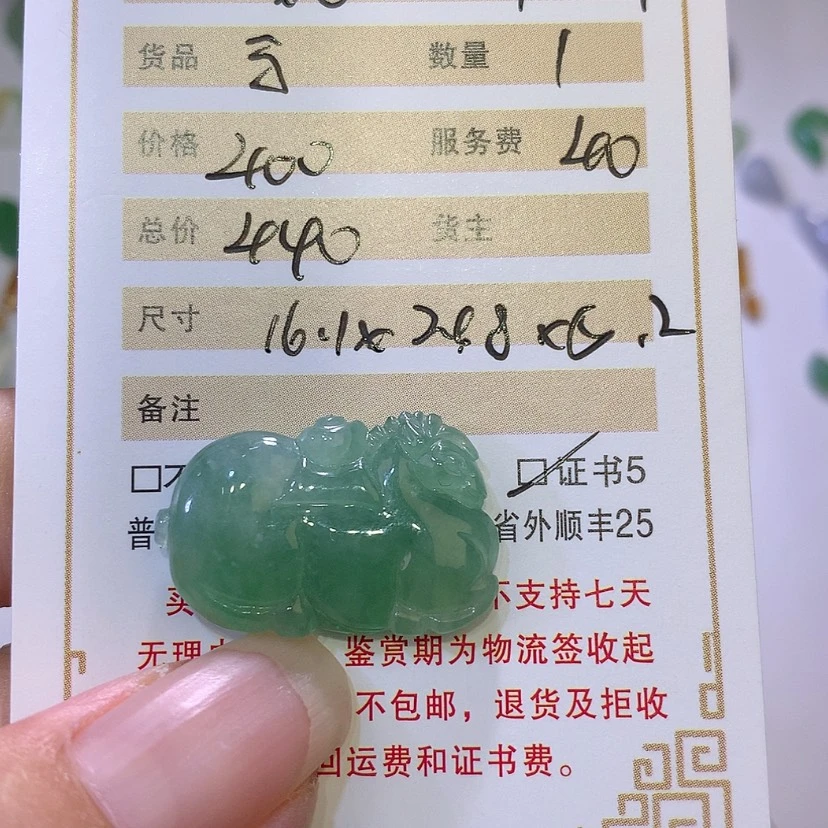 货品 数量 1
价格 2400 服务费 200
总价 4490 货主
尺寸 16.1x 28.8 x 5.2
备注
□不 □证书5
普 省外顺丰25
卖 不支持七天
无理由 鉴赏期为物流签收起
不包邮，退货及拒收
回运费和证书费。